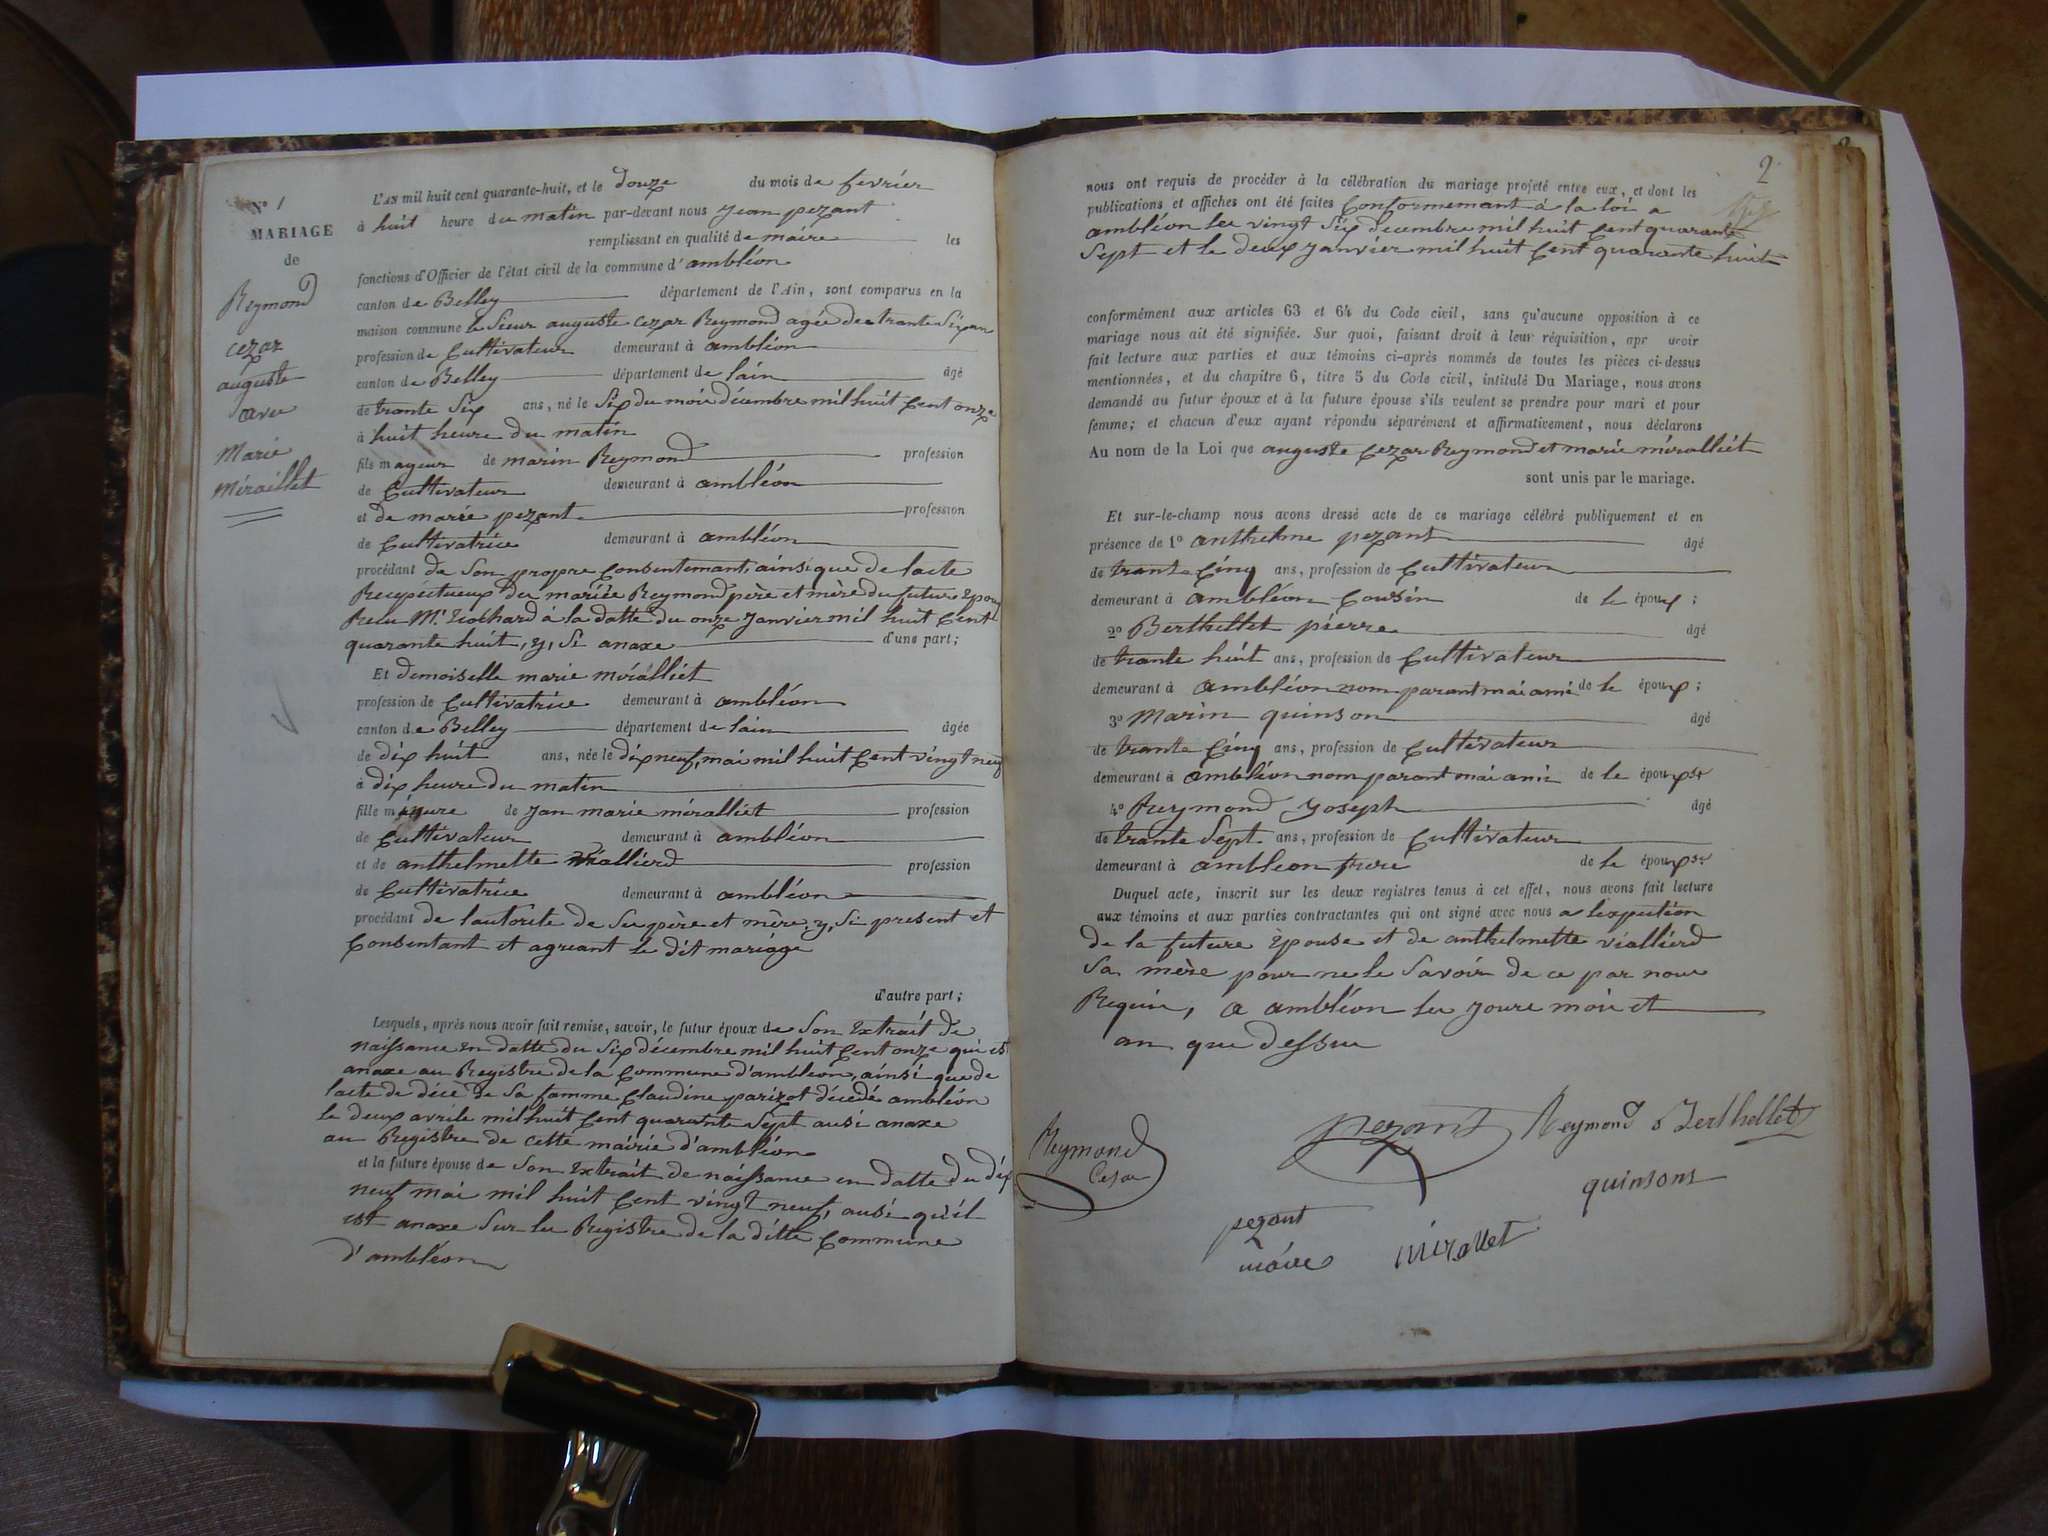 N° 1
MARIAGE
de
Reymond
cezar
auguste
avec
Marie
Méraillet
L'AN mil huit cent quarante-huit, et le douze du mois de fevrier
à huit heure du matin par-devant nous Jean pezant
remplissant en qualité de maire les
fonctions d'Officier de l'état civil de la commune d'ambléon
canton de Belley département de l'Ain, sont comparus en la
maison commune le Sieur auguste cezar Reymond agée de trante Six an
profession de Cultivateur demeurant à ambléon
canton de Belley département de lain âgé
de trante Six ans, né le Six du mois décembre mil huit Cent onze
à huit heure du matin
fils mayeur de marin Reymond profession
de Cultivateur demeurant à ambléon
et de marie pezant profession
de Cultivatrice demeurant à ambléon
procédant de Son propre Consentemant, ainsi que de lacte
Recepectueux du mariée Reymond père et mère du future Epoux
Recu Mr Trochard à la datte du onze Janvier mil huit Cent
quarante huit, y, Si anaxe d'une part;
Et demoiselle marie méralliet
profession de Cultivatrice demeurant à ambléon
canton de Belley département de lain âgée
de dix huit ans, née le dix neuf, mai mil huit Cent vingt neuf
à dix heure du matin
fille mineure de Jan marie méralliet profession
de Cultivateur demeurant à ambléon
et de anthelmette viallierd profession
de Cultivatrice demeurant à ambléon
procédant de lautorite de Se père et mère, y, Si present et
Consentant et agreant le dit mariage
d'autre part;
Lesquels, après nous avoir fait remise, savoir, le futur époux de Son Extrait de
naissance en datte du Six décembre mil huit Cent onze qui est
anaxe au Registre de la Commune d'ambléon, ainsi que de
lacte de décè de Sa famme Claudine parizot décédé ambléon
le deux avrile mil huit Cent quarante Sept ausi anaxe
au Registre de cette mairie d'ambléon
et la future épouse de Son Extrait de naissance en datte du dix
neuf mai mil huit Cent vingt neuf, ausi qu'il
est anaxe Sur le Registre de la ditte Commune
d'ambléon
2
nous ont requis de procéder à la célébration du mariage projeté entre eux, et dont les
publications et affiches ont été faites Conformemant à la loi a
ambléon les vingt Six decembre mil huit Cent quarante
Sept et le deux Janvier mil huit Cent quarante huit
conformément aux articles 63 et 64 du Code civil, sans qu'aucune opposition à ce
mariage nous ait été signifiée. Sur quoi, faisant droit à leur réquisition, apr avoir
fait lecture aux parties et aux témoins ci-après nommés de toutes les pièces ci-dessus
mentionnées, et du chapitre 6, titre 5 du Code civil, intitulé Du Mariage, nous avons
demandé au futur époux et à la future épouse s'ils veulent se prendre pour mari et pour
femme; et chacun d'eux ayant répondu séparément et affirmativement, nous déclarons
Au nom de la Loi que auguste Cezar Reymond et marie méralliét
sont unis par le mariage.
Et sur-le-champ nous avons dressé acte de ce mariage célébré publiquement et en
présence de 1° anthelme pezant âgé
de trante Cinq ans, profession de Cultivateur
demeurant à ambléon Cousin de le époux;
2° Berthellet pierre âgé
de trante huit ans, profession de Cultivateur
demeurant à ambléon nom parant mai ami de le époux;
3° Marin quinson âgé
de trante Cinq ans, profession de Cultivateur
demeurant à ambléon nom parant mai ami de le époux
4° Reymond Joseph âgé
de trante Sept ans, profession de Cultivateur
demeurant à ambleon frere de le époux
Duquel acte, inscrit sur les deux registres tenus à cet effet, nous avons fait lecture
aux témoins et aux parties contractantes qui ont signé avec nous a lexpection
de la future Epouse et de anthelmette vialliérd
Sa mère pour ne le Savoir de ce par nous
Requin, a ambléon les Joure moi et
an que dessue
Reymond
Cesar
pezant
Reymond
Berthellet
quinsons
pezant
maire
mirallet